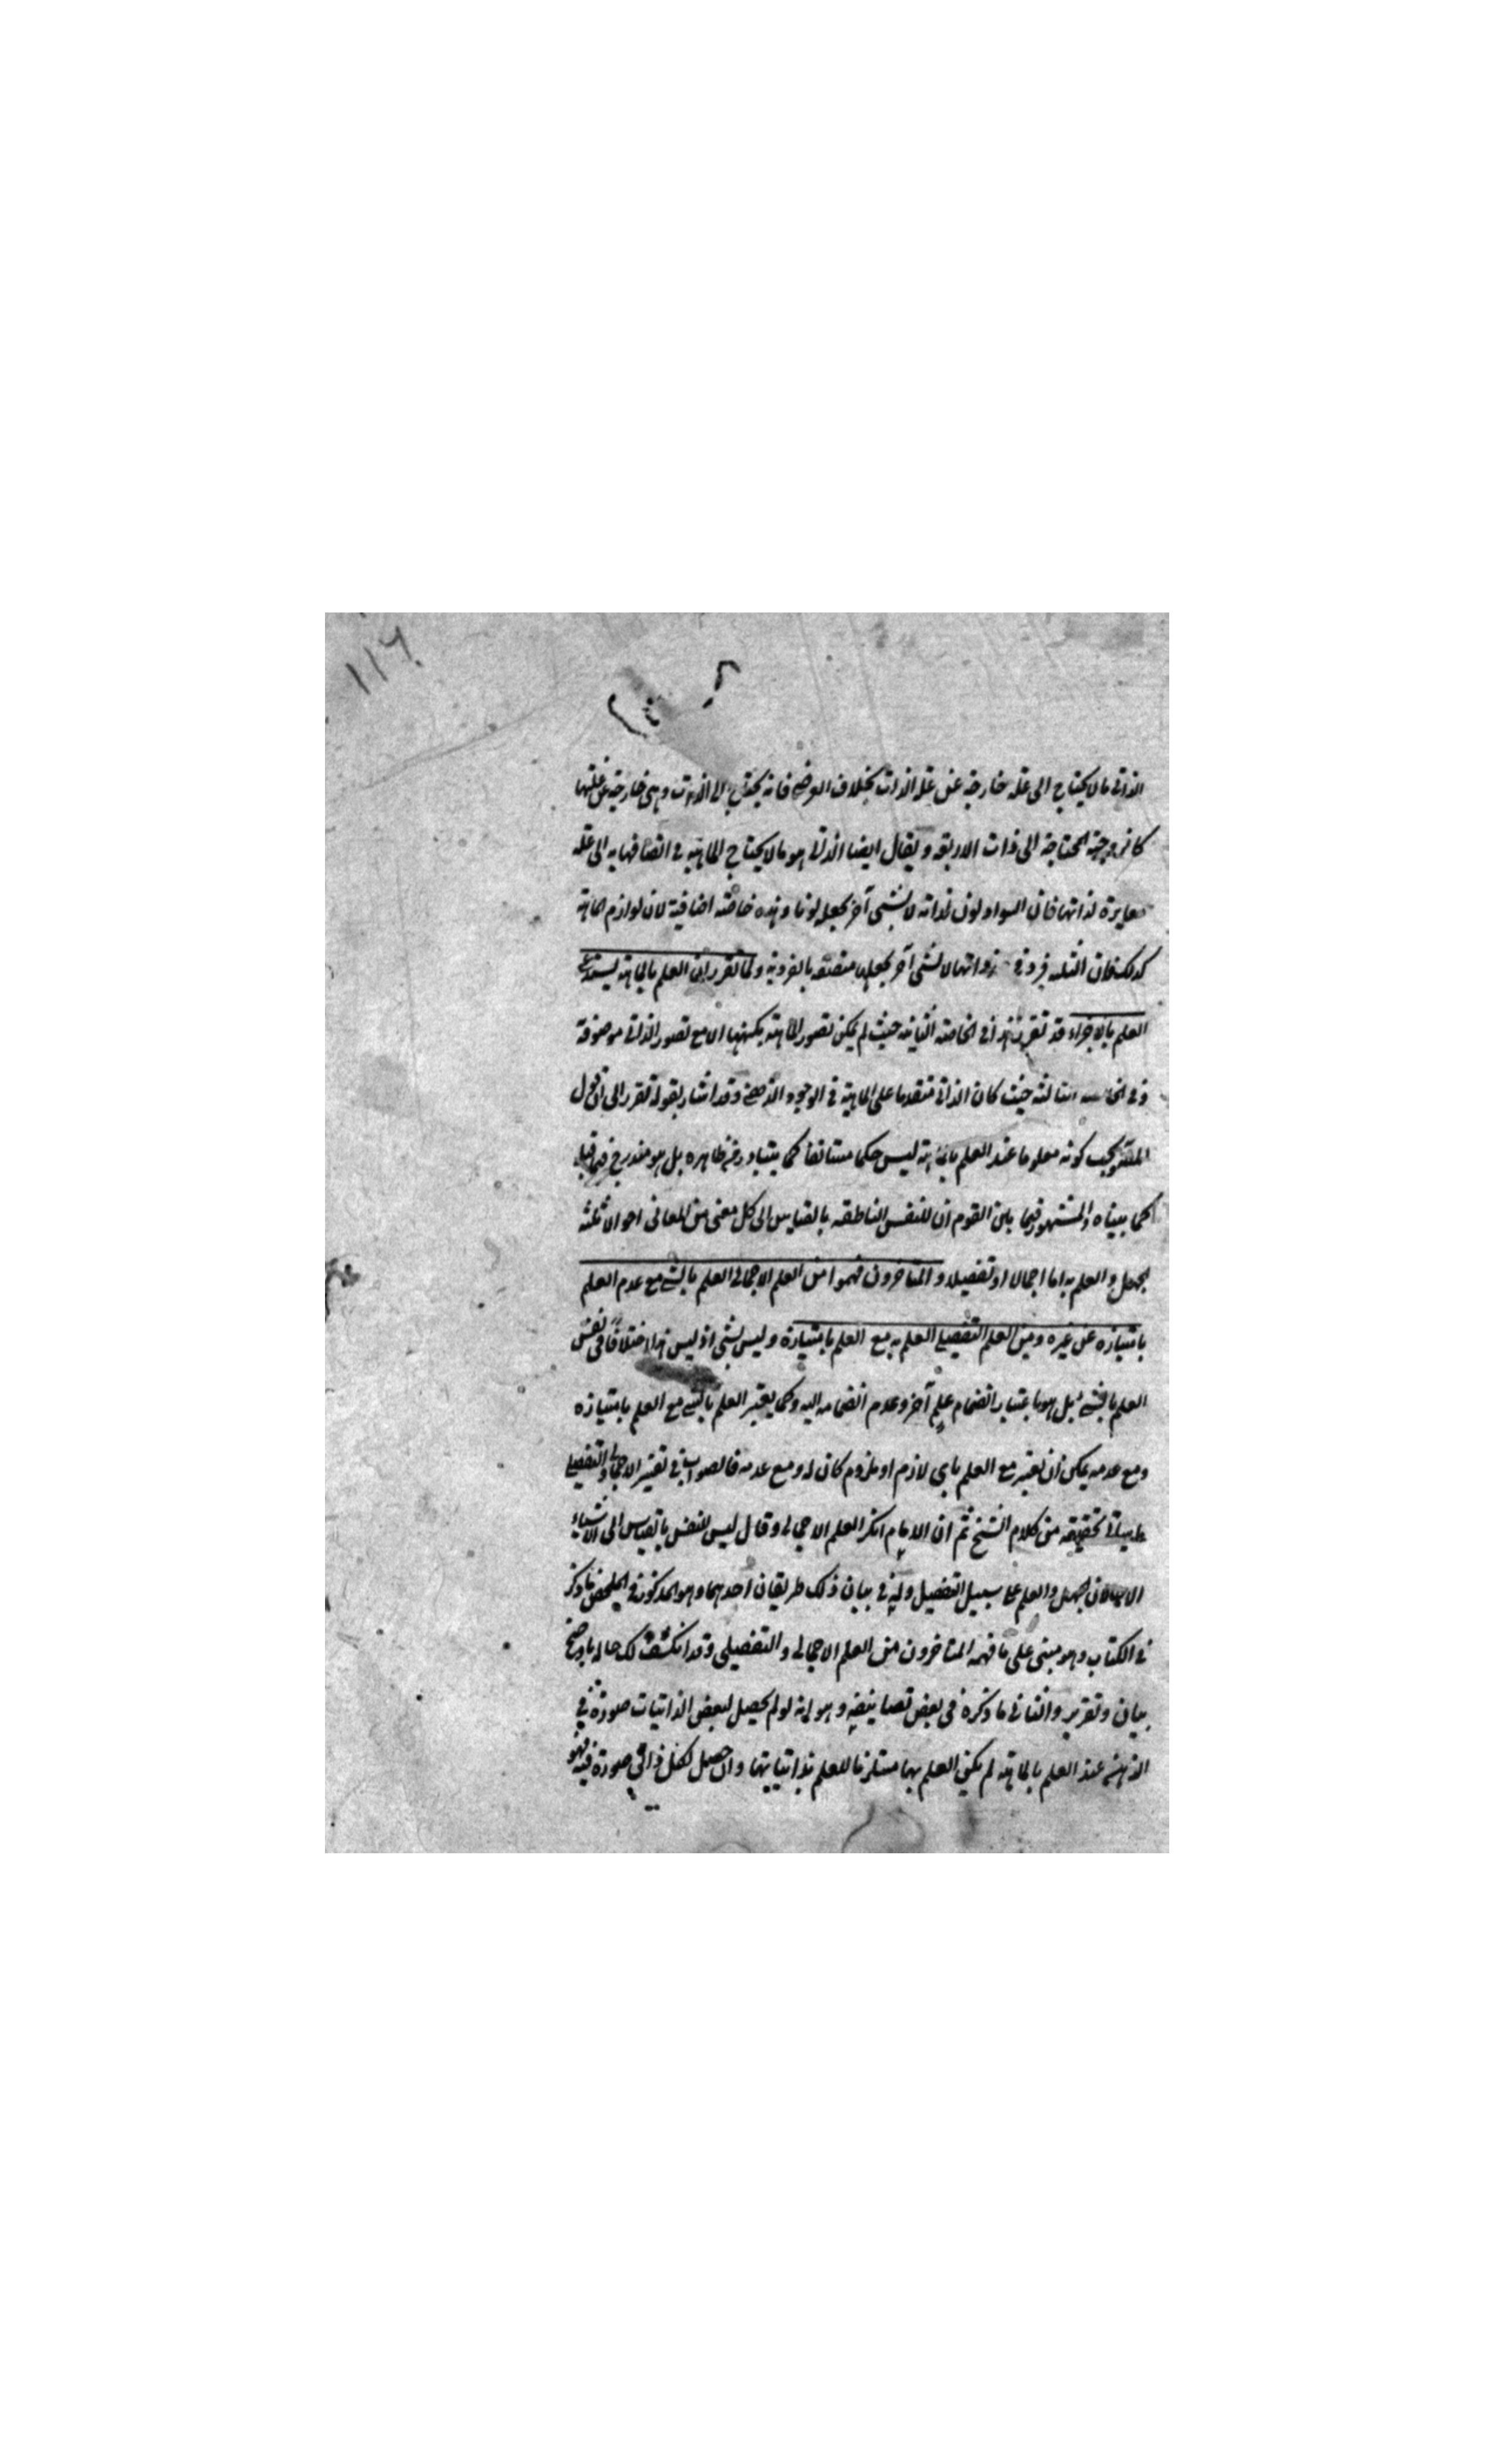 ١١٦
الذاتي ما لا يحتاج الى علة خارجة عن علة الذات بخلاف العرضي فانه يحتاج الى الذات وهى خارجة عن علتها
كالزوجية المحتاجة الى ذات الاربعة ويقال ايضا الذاتي هو ما لا يحتاج الماهية في اتصافها به الى علة
مغايرة لذاتها فان السواد لون لذاته لا لشئ آخر يجعله لونا وهذه خاصة اضافية لان لوازم الماهية
كذلك فان الثلثة فرد في ذواتها لا لشئ آخر يجعلها متصفة بالفردية ولما تقرر ان العلم بالماهية يستدعي
العلم بالاجزاء قد تقرر هذا في الخاصة الثانية حيث لم يمكن تصور الماهية بكنهها الا مع تصور الذاتي موصوفة
وفي الخاصة الثالثة حيث كان الذاتي متقدما على الماهية في الوجود الذهني وقد اشار بقوله تقرر الى ان قول
المص يجب كونه معلوما عند العلم بالماهية ليس حكما مستانفا كما يتبادر من ظاهره بل هو مندرج فيما قبله
كما بيناه والمشهور فيما بين القوم ان للنفس الناطقة بالقياس الى كل معنى من المعاني احوالا ثلثة
الجهل والعلم به اما اجمالا او تفصيلا والمتاخرون فهموا من العلم الاجمالي العلم بالشئ مع عدم العلم
بامتيازه عن غيره ومن العلم التفصيلي العلم به مع العلم بامتيازه وليس بشئ اذ ليس هذا اختلافا في نفس
العلم بالشئ بل هو باعتبار انضمام علم آخر وعدم انضمامه اليه وكما يعتبر العلم بالشئ مع العلم بامتيازه
ومع عدمه يمكن ان يعتبر مع العلم باى لازم او ملزوم كان له ومع عدمه فالصواب في تفسير الاجمالي والتفصيلي
ما سياتي تحقيقه من كلام الشيخ ثم ان الامام انكر العلم الاجمالي وقال ليس للنفس بالقياس الى الاشياء
الا حالان الجهل والعلم على سبيل التفصيل وله في بيان ذلك طريقان احدهما وهو المذكور في الملخص ما ذكر
في الكتاب وهو مبنى على ما فهمه المتاخرون من العلم الاجمالي والتفصيلى وقد انكشف لك حاله باوضح
بيان وتقرير والثاني ما ذكره في بعض تصانيفه وهو انه لو لم يحصل لبعض الذاتيات صورة في
الذهن عند العلم بالماهية لم يكن العلم بها مستلزما للعلم بذاتياتها وان حصل لكل ذاتي صورة فيه فهو